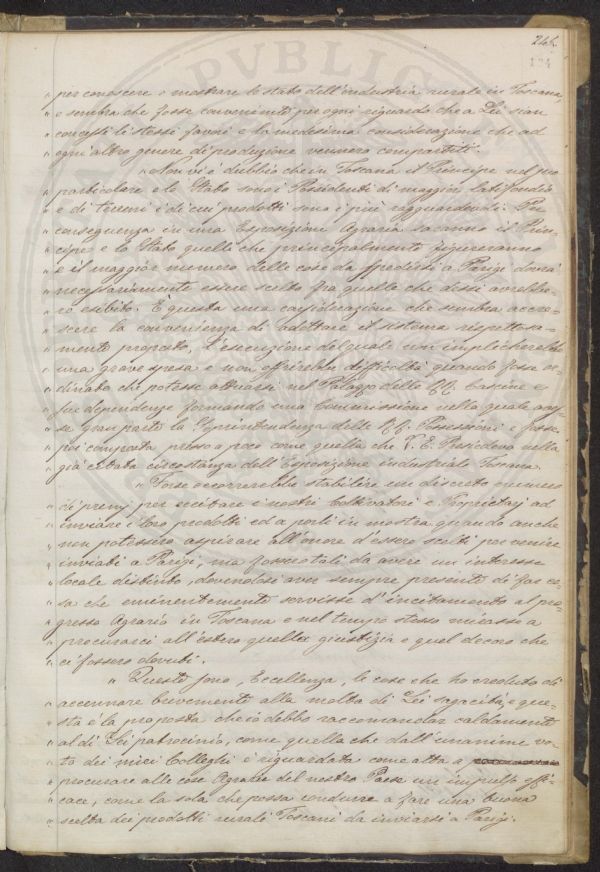 246
124
PUBLIC
" per conoscere e mostrare lo stato dell'industria rurale in Toscana,
" e sembra che fosse conveniente per ogni riguardo che a Lei sian
" concessi li stessi favori e la medesima considerazione che ad
" ogni altro genere di produzione vennero compartiti.
" Non vi è dubbio che in Toscana il Principe nel suo
" particolare e lo Stato sono i Possidenti di maggiori latifondi
" e di terreni i di cui prodotti sono i più ragguardevoli. Per
" conseguenza in una Esposizione Agraria saranno il Prin=
" cipe e lo Stato quelli che principalmente figureranno
" e il maggior numero delle cose da spedirsi a Parigi dovrà
" necessariamente essere scelto fra quelle che dessi avrebbe=
" ro esibito. È questa una considerazione che sembra accre=
" scere la convenienza di adottare il sistema rispettosa=
" mente proposto, l'esecuzione del quale non implicherebbe
" una grave spesa e non offrirebbe difficoltà quando fosse or=
" dinato che potesse attuarsi nel Palazzo delle RR. Cascine e
" sue dependenze formando una Commissione nella quale aves=
" se gran parte la Soprintendenza delle RR. Possessioni e fosse
" poi composta presso a poco come quella che V. E. Presiedeva nella
" già citata circostanza dell'Esposizione industriale Toscana.
" Forse occorrerebbe stabilire un discreto numero
" di premj per eccitare i nostri Coltivatori e Proprietarj ad
" inviare i loro prodotti ed a porli in mostra quando anche
" non potessero aspirare all'onore d'essere scelti per venire
" inviati a Parigi, ma fosser tali da avere un interesse
" locale distinto, dovendosi aver sempre presente di far co=
" sa che eminentemente servisse d'incitamento al pro=
" gresso Agrario in Toscana e nel tempo stesso mirasse a
" procurarci all'estero quella giustizia e quel decoro che
" ci fossero dovuti.
" Queste sono, Eccellenza, le cose che ho creduto di
" accennare brevemente alla molta di Lei sagacità, e que=
" sta è la proposta che io debbo raccomandar caldamente
" al di Lei patrocinio, come quella che dall'unanime vo=
" to dei miei Colleghi è riguardata come atta a
" procurare alle cose Agrarie del nostro Paese un impulso effi=
" cace, come la sola che possa condurre a fare una buona
" scelta dei prodotti rurali Toscani da inviarsi a Parigi.